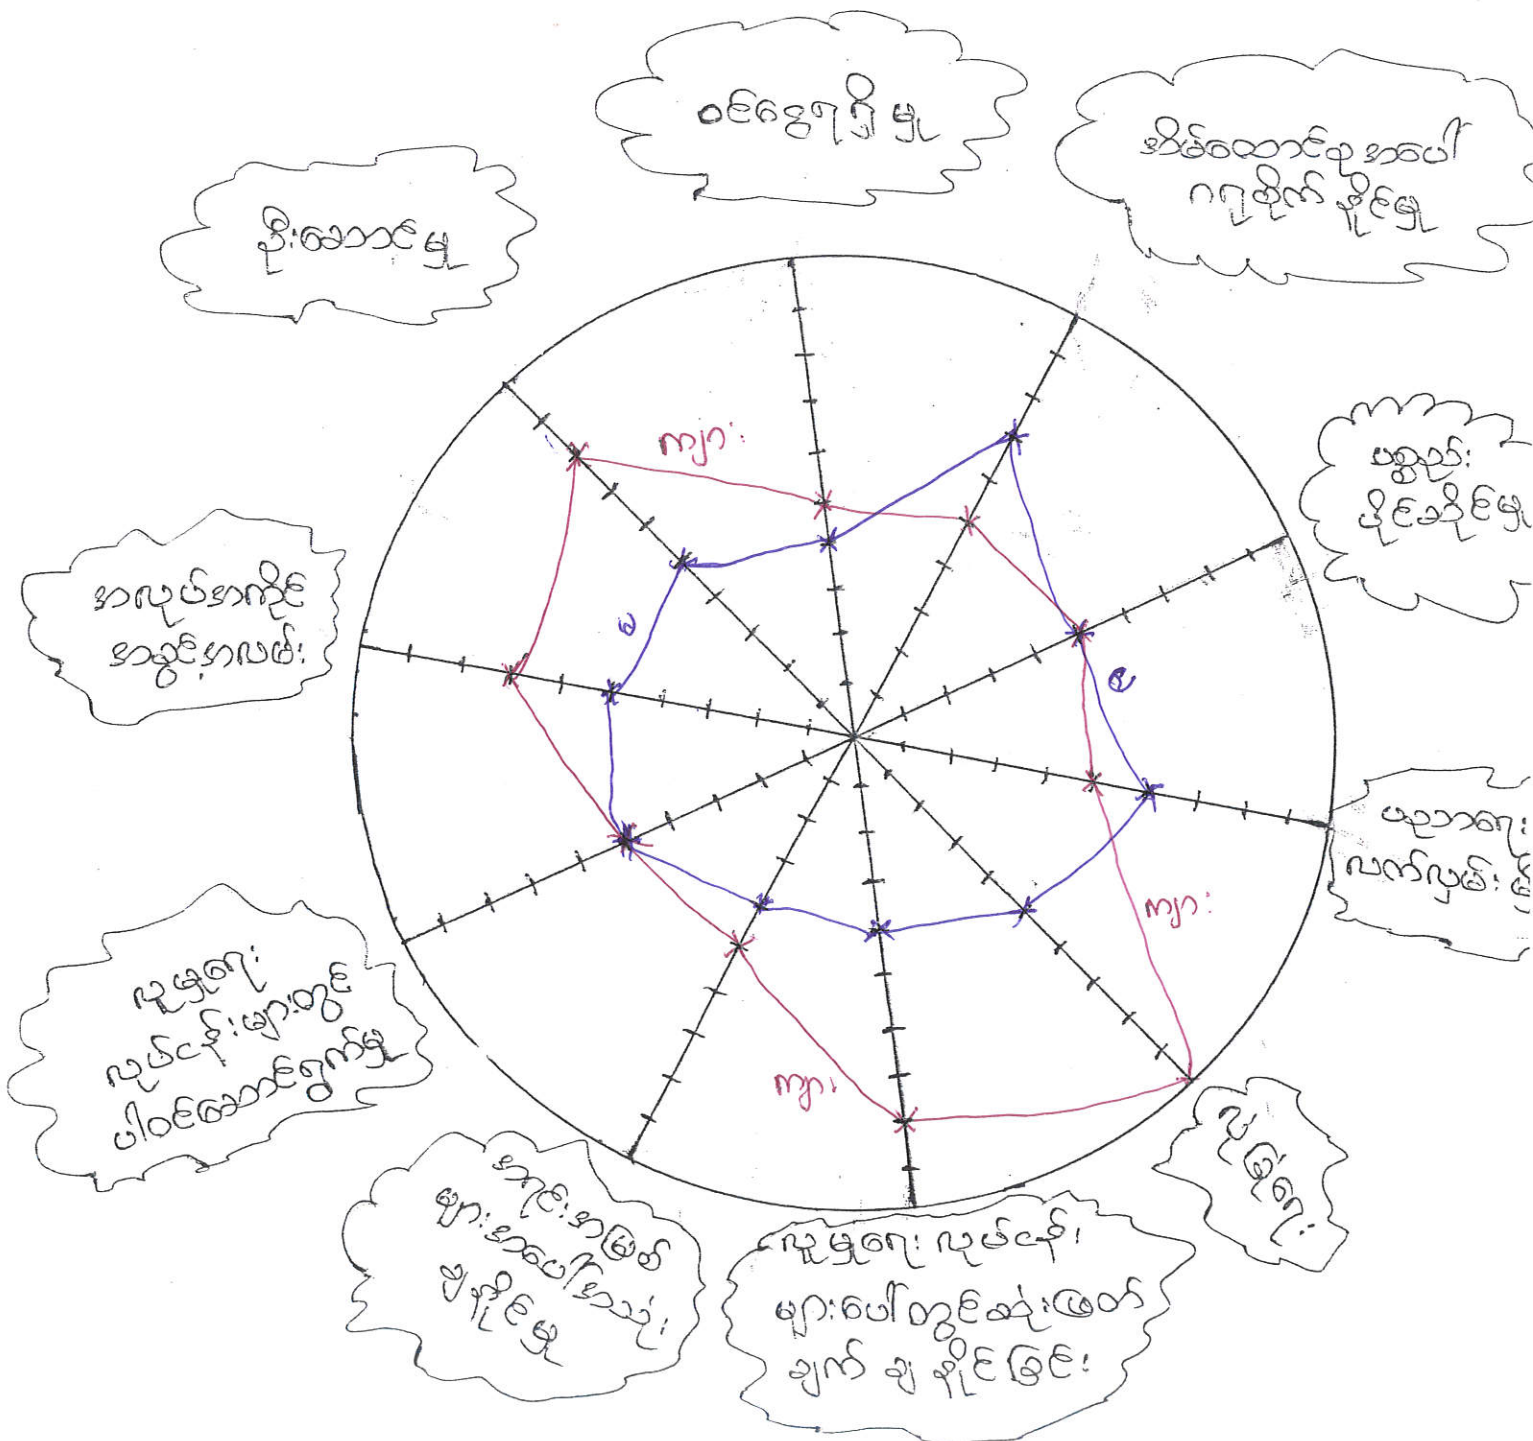 ဝင်ငွေရရှိမှု
အိမ်ထောင်စုအပေါ်
ဂရုစိုက်နိုင်မှု
ဦးဆောင်မှု
ပစ္စည်း
ပိုင်ဆိုင်မှု
ကျား
မ
အလုပ်အကိုင်
အခွင့်အလမ်း
မ
ပညာရေး
လက်လှမ်း
ကျား
လူမှုရေး
လုပ်ငန်းများတွင်
ပါဝင်ဆောင်ရွက်မှု
ကျား
လုံခြုံရေး
အရင်းအမြစ်
များအပေါ်အသုံး
ချနိုင်မှု
လူမှုရေး လုပ်ငန်း
များပေါ်တွင်ဆုံးဖြတ်
ချက် ချ နိုင်ခြင်း